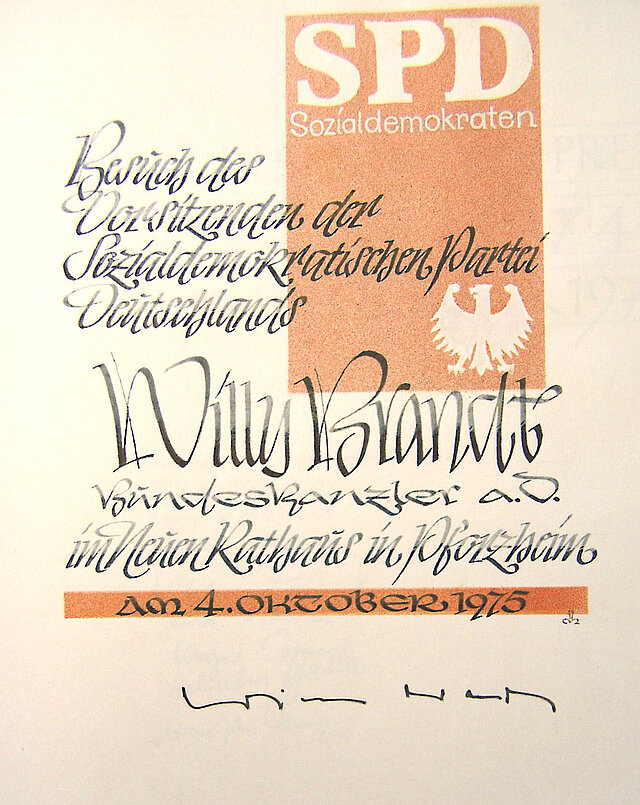 SPD
Sozialdemokraten
Besuch des
Vorsitzenden der
Sozialdemokratischen Partei
Deutschlands
Willy Brandt
Bundeskanzler a.D.
im Neuen Rathaus in Pforzheim
AM 4. OKTOBER 1975